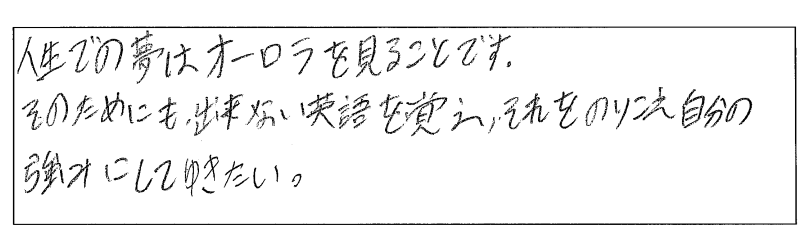 人生での夢はオーロラを見ることです。
そのためにも、出来ない英語を覚え、それをのりこえ自分の
強みにしてゆきたい。